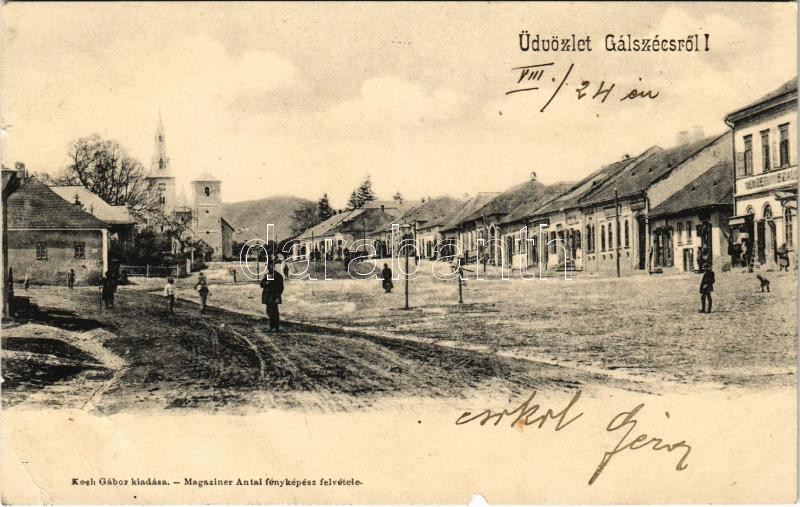 Üdvözlet Gálszécsről!
VIII/24 én
NEMZETI
darabanth.com
csókol Géza
Koch Gábor kiadása. — Magaziner Antal fényképész felvétele.